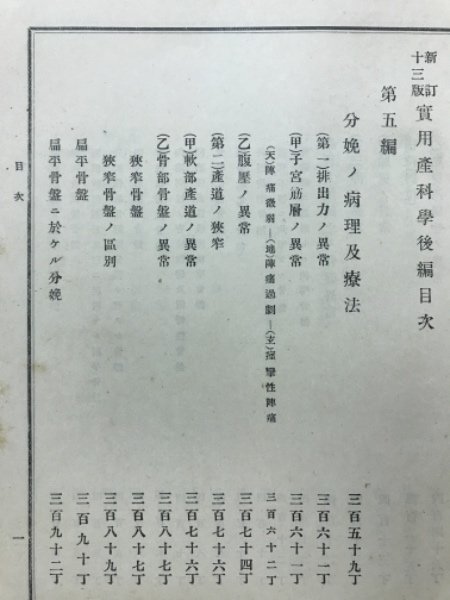 新訂十三版 實用產科學後編目次
第五編
分娩ノ病理及療法 三百五十九丁
(第一)排出力ノ異常 三百六十一丁
(甲)子宮筋層ノ異常 三百六十一丁
(天)陣痛微弱—(地)陣痛過劇—(玄)痙攣性陣痛 三百六十二丁
(乙)腹壓ノ異常 三百七十四丁
(第二)產道ノ狹窄 三百七十六丁
(甲)軟部產道ノ異常 三百七十六丁
(乙)骨部骨盤ノ異常 三百八十七丁
狹窄骨盤 三百八十七丁
狹窄骨盤ノ區別 三百八十九丁
扁平骨盤 三百九十丁
扁平骨盤ニ於ケル分娩 三百九十二丁
目次 一